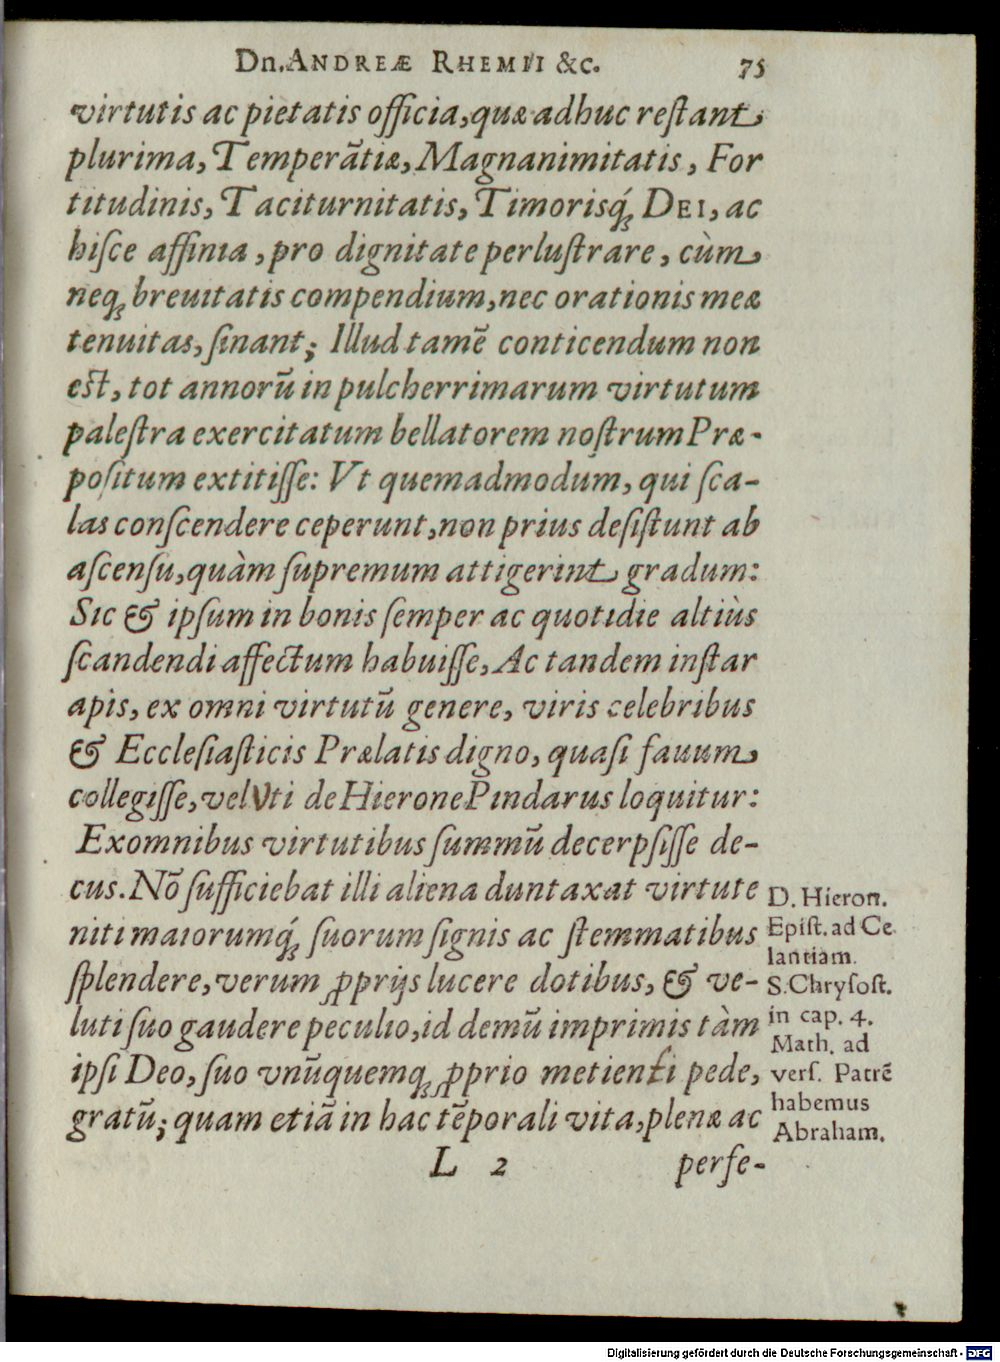 Dn. ANDREÆ RHEMII &c. 75
virtutis ac pietatis officia, quæ adhuc reſtant
plurima, Temperãtiæ, Magnanimitatis, For
titudinis, Taciturnitatis, Timorisq́ꝫ DEI, ac
hiſce affinia, pro dignitate perluſtrare, cùm
neqꝫ breuitatis compendium, nec orationis meæ
tenuitas, ſinant; Illud tamẽ conticendum non
eſt, tot annorũ in pulcherrimarum virtutum
paleſtra exercitatum bellatorem noſtrum Præ-
poſitum extitiſſe: Vt quemadmodum, qui ſca-
las conſcendere ceperunt, non prius deſiſtunt ab
aſcenſu, quàm ſupremum attigerint gradum:
Sic & ipſum in bonis ſemper ac quotidie altiùs
ſcandendi affectum habuiſſe, Ac tandem inſtar
apis, ex omni virtutũ genere, viris celebribus
& Eccleſiaſticis Prælatis digno, quaſi fauum
collegiſſe, velVti de Hierone Pindarus loquitur:
Ex omnibus virtutibus ſummũ decerpſiſſe de-
cus. Nõ ſufficiebat illi aliena duntaxat virtute
niti maiorumq́ꝫ ſuorum ſignis ac ſtemmatibus
ſplendere, verum ꝓprijs lucere dotibus, & ve-
luti ſuo gaudere peculio, id demũ imprimis tàm
ipſi Deo, ſuo vnũquemqꝫ ꝓprio metienti pede,
gratũ; quam etiã in hac tẽporali vita, plenæ ac
D. Hieron.
Epiſt. ad Ce
lantiam.
S. Chryſoſt.
in cap. 4.
Math. ad
verſ. Patrẽ
habemus
Abraham.
L 2 perfe-
Digitalisierung gefördert durch die Deutsche Forschungsgemeinschaft - DFG